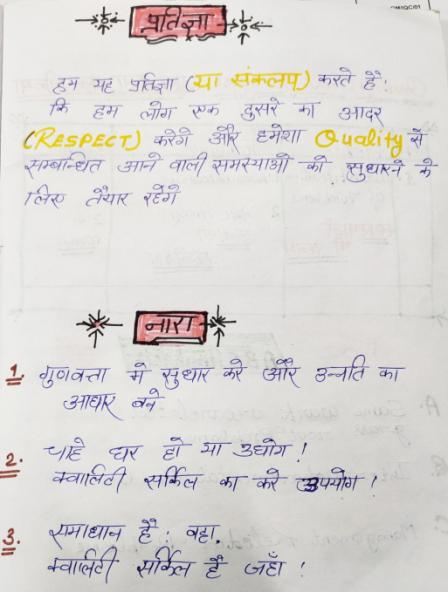 प्रतिज्ञा
हम यह प्रतिज्ञा (या संकलप) करते हैं:
कि हम लोग एक दुसरे का आदर
(RESPECT) करेंगे और हमेशा Quality से
सम्बन्धित आने वाली समस्याओं को सुधारने के
लिए तैयार रहेंगे
नारा
1. गुणवत्ता मे सुधार करे और उन्नति का
आधार बने
2. चाहे घर हो या उद्योग !
क्वालिटी सर्किल का करे उपयोग !
3. समाधान है : वहा.
क्वालिटी सर्किल है जहाँ !